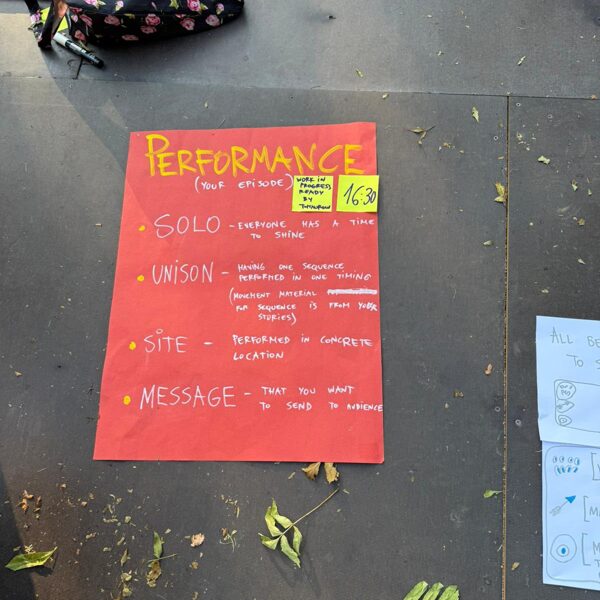 PERFORMANCE
(YOUR EPISODE)
WORK IN
PROGRESS
READY
BY
TOMORROW
16:30
• SOLO - EVERYONE HAS A TIME
TO SHINE
• UNISON - HAVING ONE SEQUENCE
PERFORMED IN ONE TIMING
(MOVEMENT MATERIAL
FOR SEQUENCE IS FROM YOUR
STORIES)
• SITE - PERFORMED IN CONCRETE
LOCATION
• MESSAGE - THAT YOU WANT
TO SEND TO AUDIENCE
ALL BE
TO S